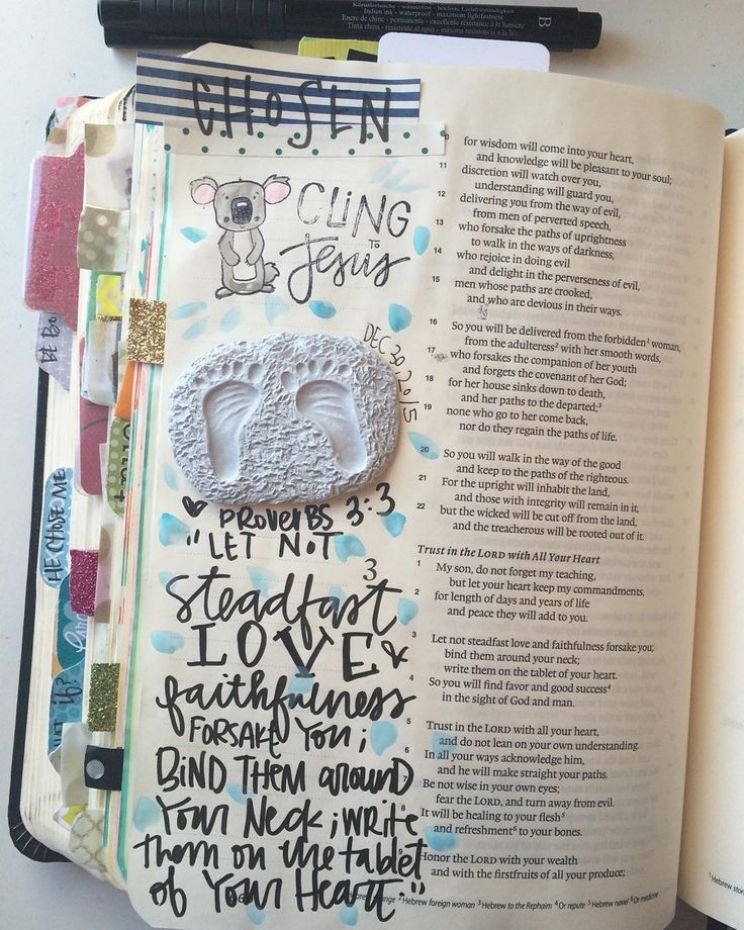 Indian ink - waterproof - maximum lightfastness
Encre de chine - permanente - excellente résistance à la lumière
Tinta china - resistente al agua - máxima resistencia a la luz
B
CHOSEN
CLING
to
Jesus
DEC 30, 2015
♥ PROVERBS 3:3
"LET NOT
steadfast
LOVE &
faithfulness
FORSAKE You;
BIND THEM around
Your Neck; write
them on the tablet
of Your Heart."
for wisdom will come into your heart,
and knowledge will be pleasant to your soul;
11 discretion will watch over you,
understanding will guard you,
12 delivering you from the way of evil,
from men of perverted speech,
13 who forsake the paths of uprightness
to walk in the ways of darkness,
14 who rejoice in doing evil
and delight in the perverseness of evil,
15 men whose paths are crooked,
and who are devious in their ways.
16 So you will be delivered from the forbidden¹ woman,
from the adulteress² with her smooth words,
17 who forsakes the companion of her youth
and forgets the covenant of her God;
18 for her house sinks down to death,
and her paths to the departed;³
19 none who go to her come back,
nor do they regain the paths of life.
20 So you will walk in the way of the good
and keep to the paths of the righteous.
21 For the upright will inhabit the land,
and those with integrity will remain in it,
22 but the wicked will be cut off from the land,
and the treacherous will be rooted out of it.
Trust in the LORD with All Your Heart
3
1 My son, do not forget my teaching,
but let your heart keep my commandments,
2 for length of days and years of life
and peace they will add to you.
3 Let not steadfast love and faithfulness forsake you;
bind them around your neck;
write them on the tablet of your heart.
4 So you will find favor and good success⁴
in the sight of God and man.
5 Trust in the LORD with all your heart,
and do not lean on your own understanding.
6 In all your ways acknowledge him,
and he will make straight your paths.
7 Be not wise in your own eyes;
fear the LORD, and turn away from evil.
It will be healing to your flesh⁵
and refreshment⁶ to your bones.
Honor the LORD with your wealth
and with the firstfruits of all your produce;
² Hebrew foreign woman ³ Hebrew to the Rephaim ⁴ Or repute ⁵ Hebrew navel ⁶ Or medicine
¹ Hebrew
HE CHOSE ME